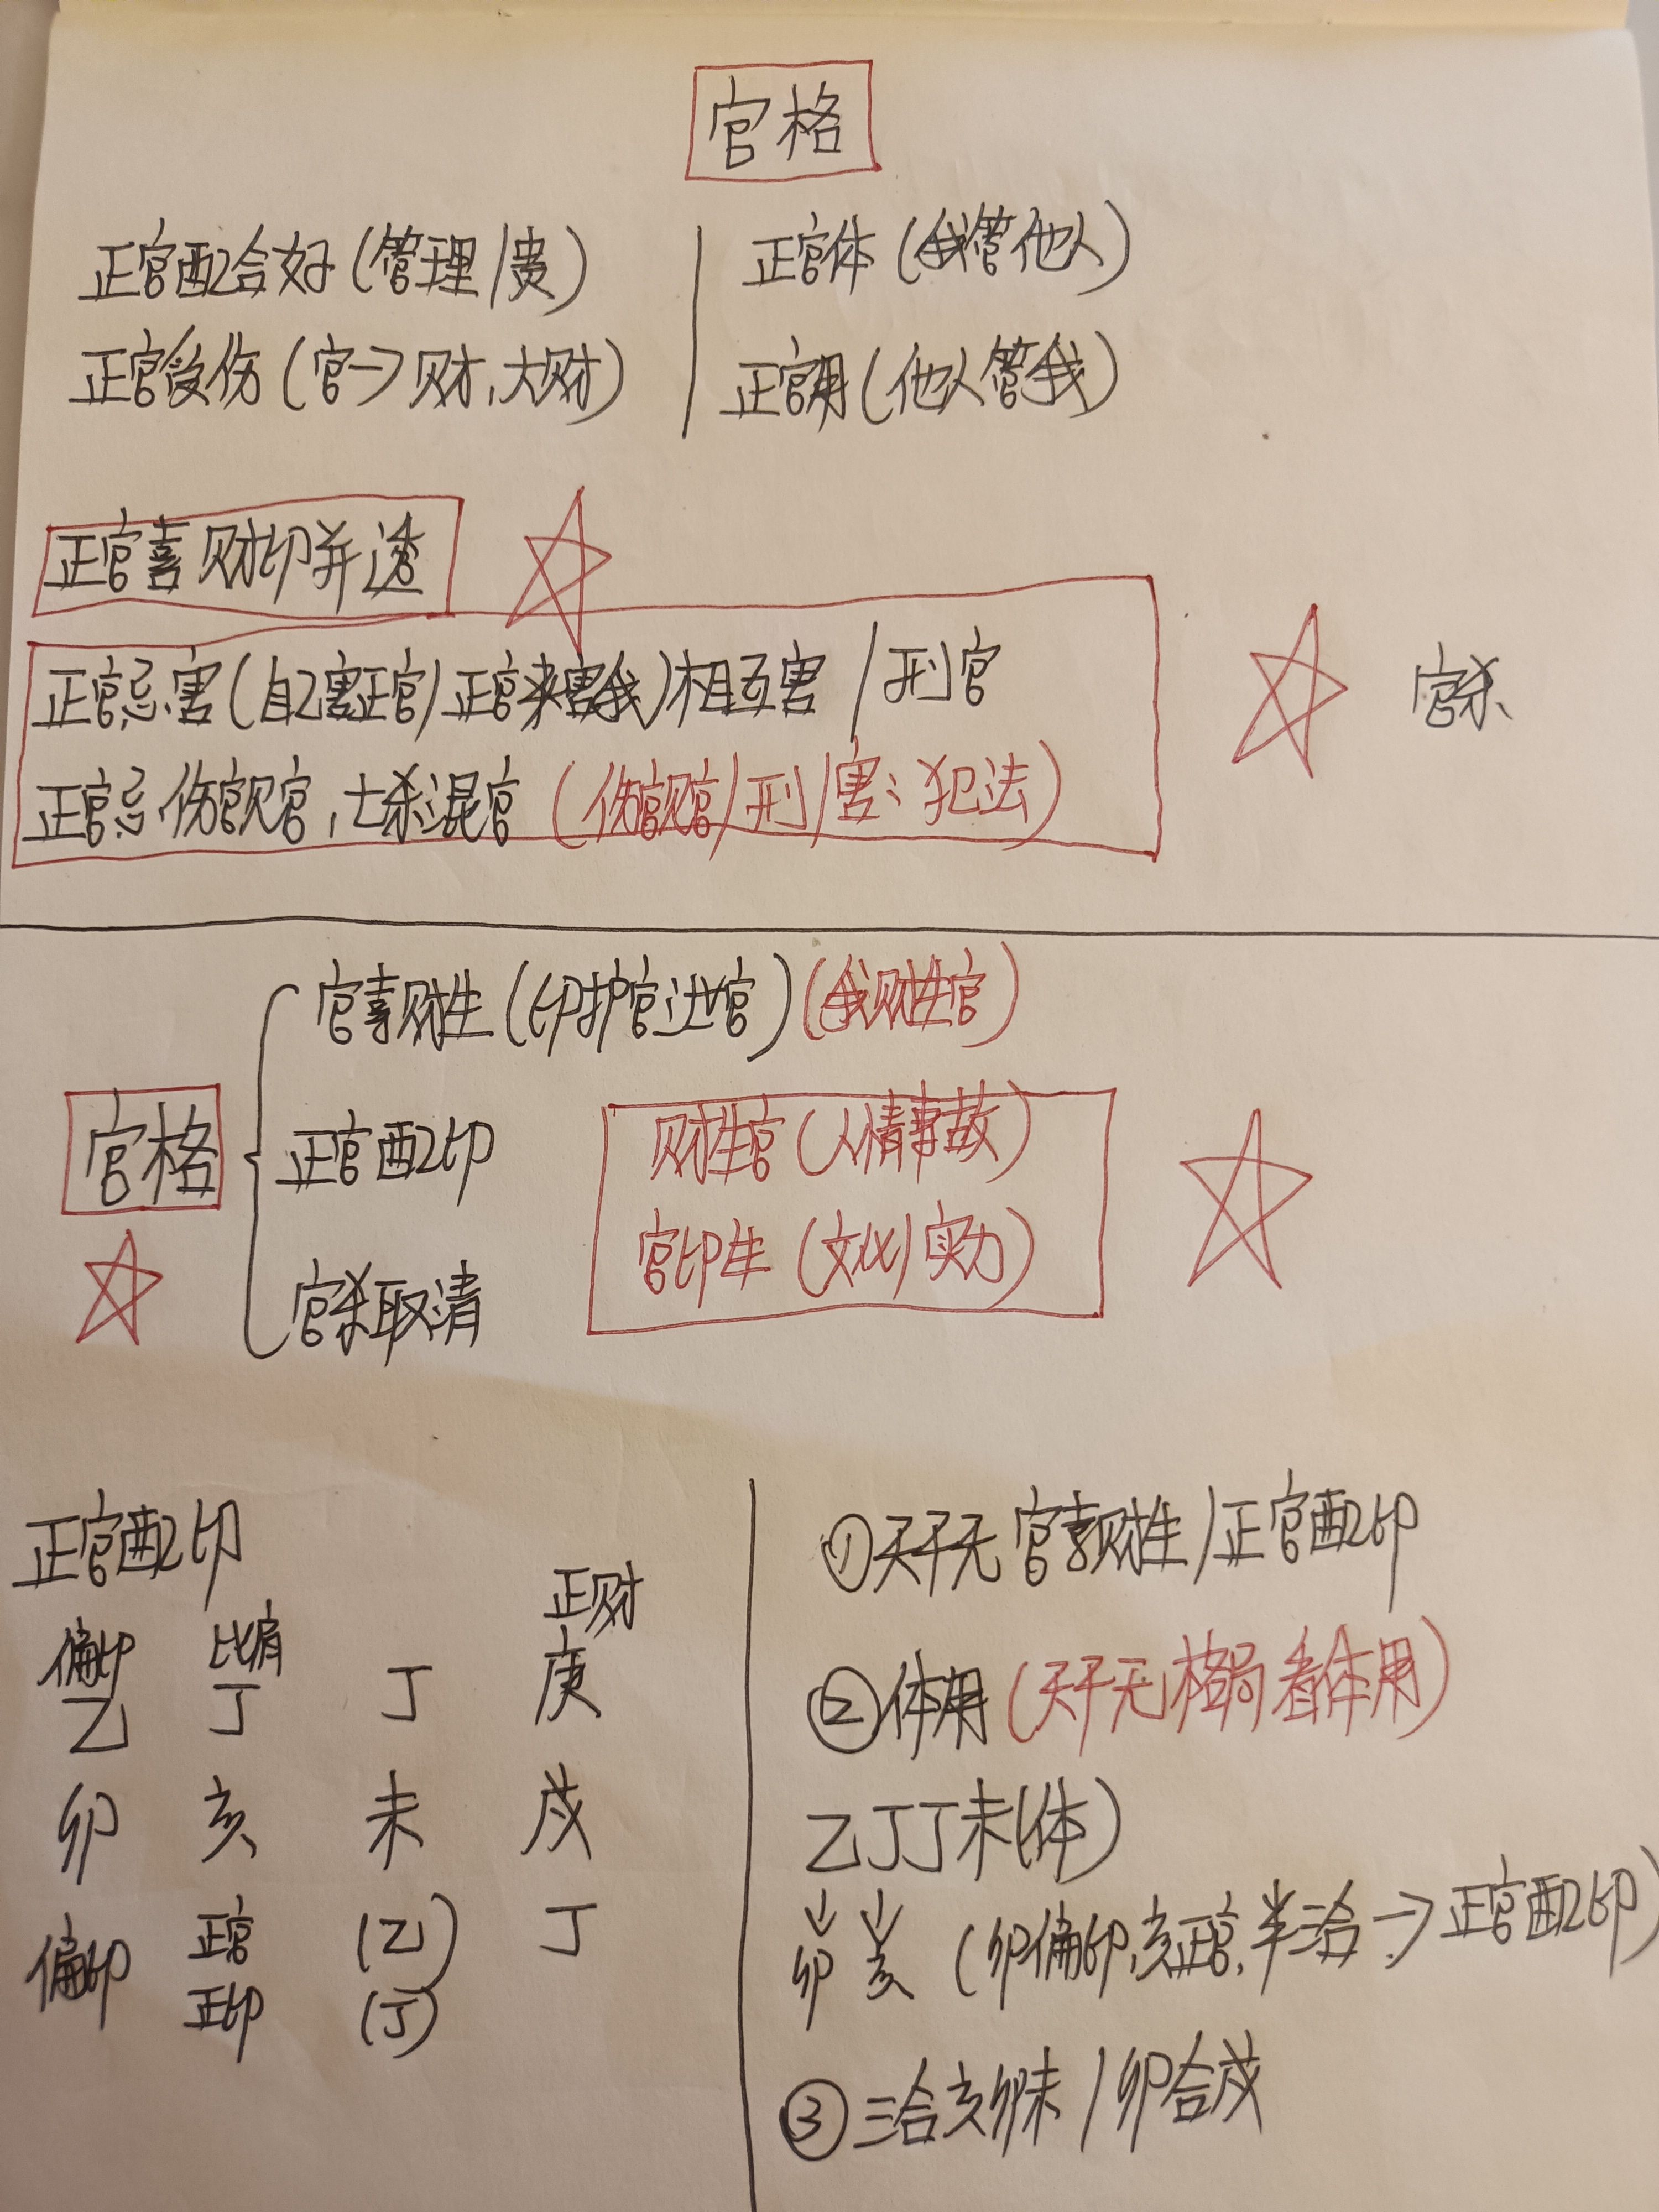 官格
正官配合好(管理/贵)
正官受伤(官→财,大财)
正官体(我管他人)
正官用(他人管我)
正官喜财印并透
正官忌害(自己害正官/正官来害我)相互害/刑官
正官忌伤官见官,七杀混官(伤官见官/刑/害:犯法)
官杀
官格
官喜财生(印护官进官)(我财生官)
正官配印
官杀取清
财生官(人情事故)
官印生(文化/实力)
正官配印
正财
偏印 比肩
乙 丁 丁 庚
卯 亥 未 戌
偏印 正官 (乙) 丁
正印 (丁)
①天干无官喜财生/正官配印
②体用(天干无格局看体用)
乙丁丁未(体)
↓ ↓
卯 亥 (卯偏印,亥正官,半三合→正官配印)
③三合亥卯未/卯合戌